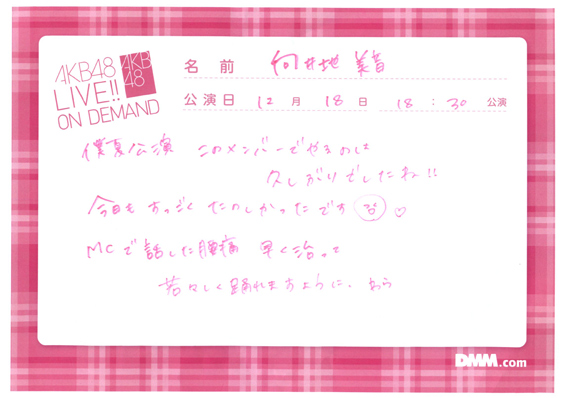 AKB48
LIVE!!
ON DEMAND
AKB
48
名前 向井地 美音
公演日 12月 18日 18:30 公演
僕夏公演 このメンバーでやるのは
久しぶりでしたね!!
今日も すっごく たのしかったです ♡
MCで話した腰痛 早く治って
若々しく踊れますように。
DMM.com